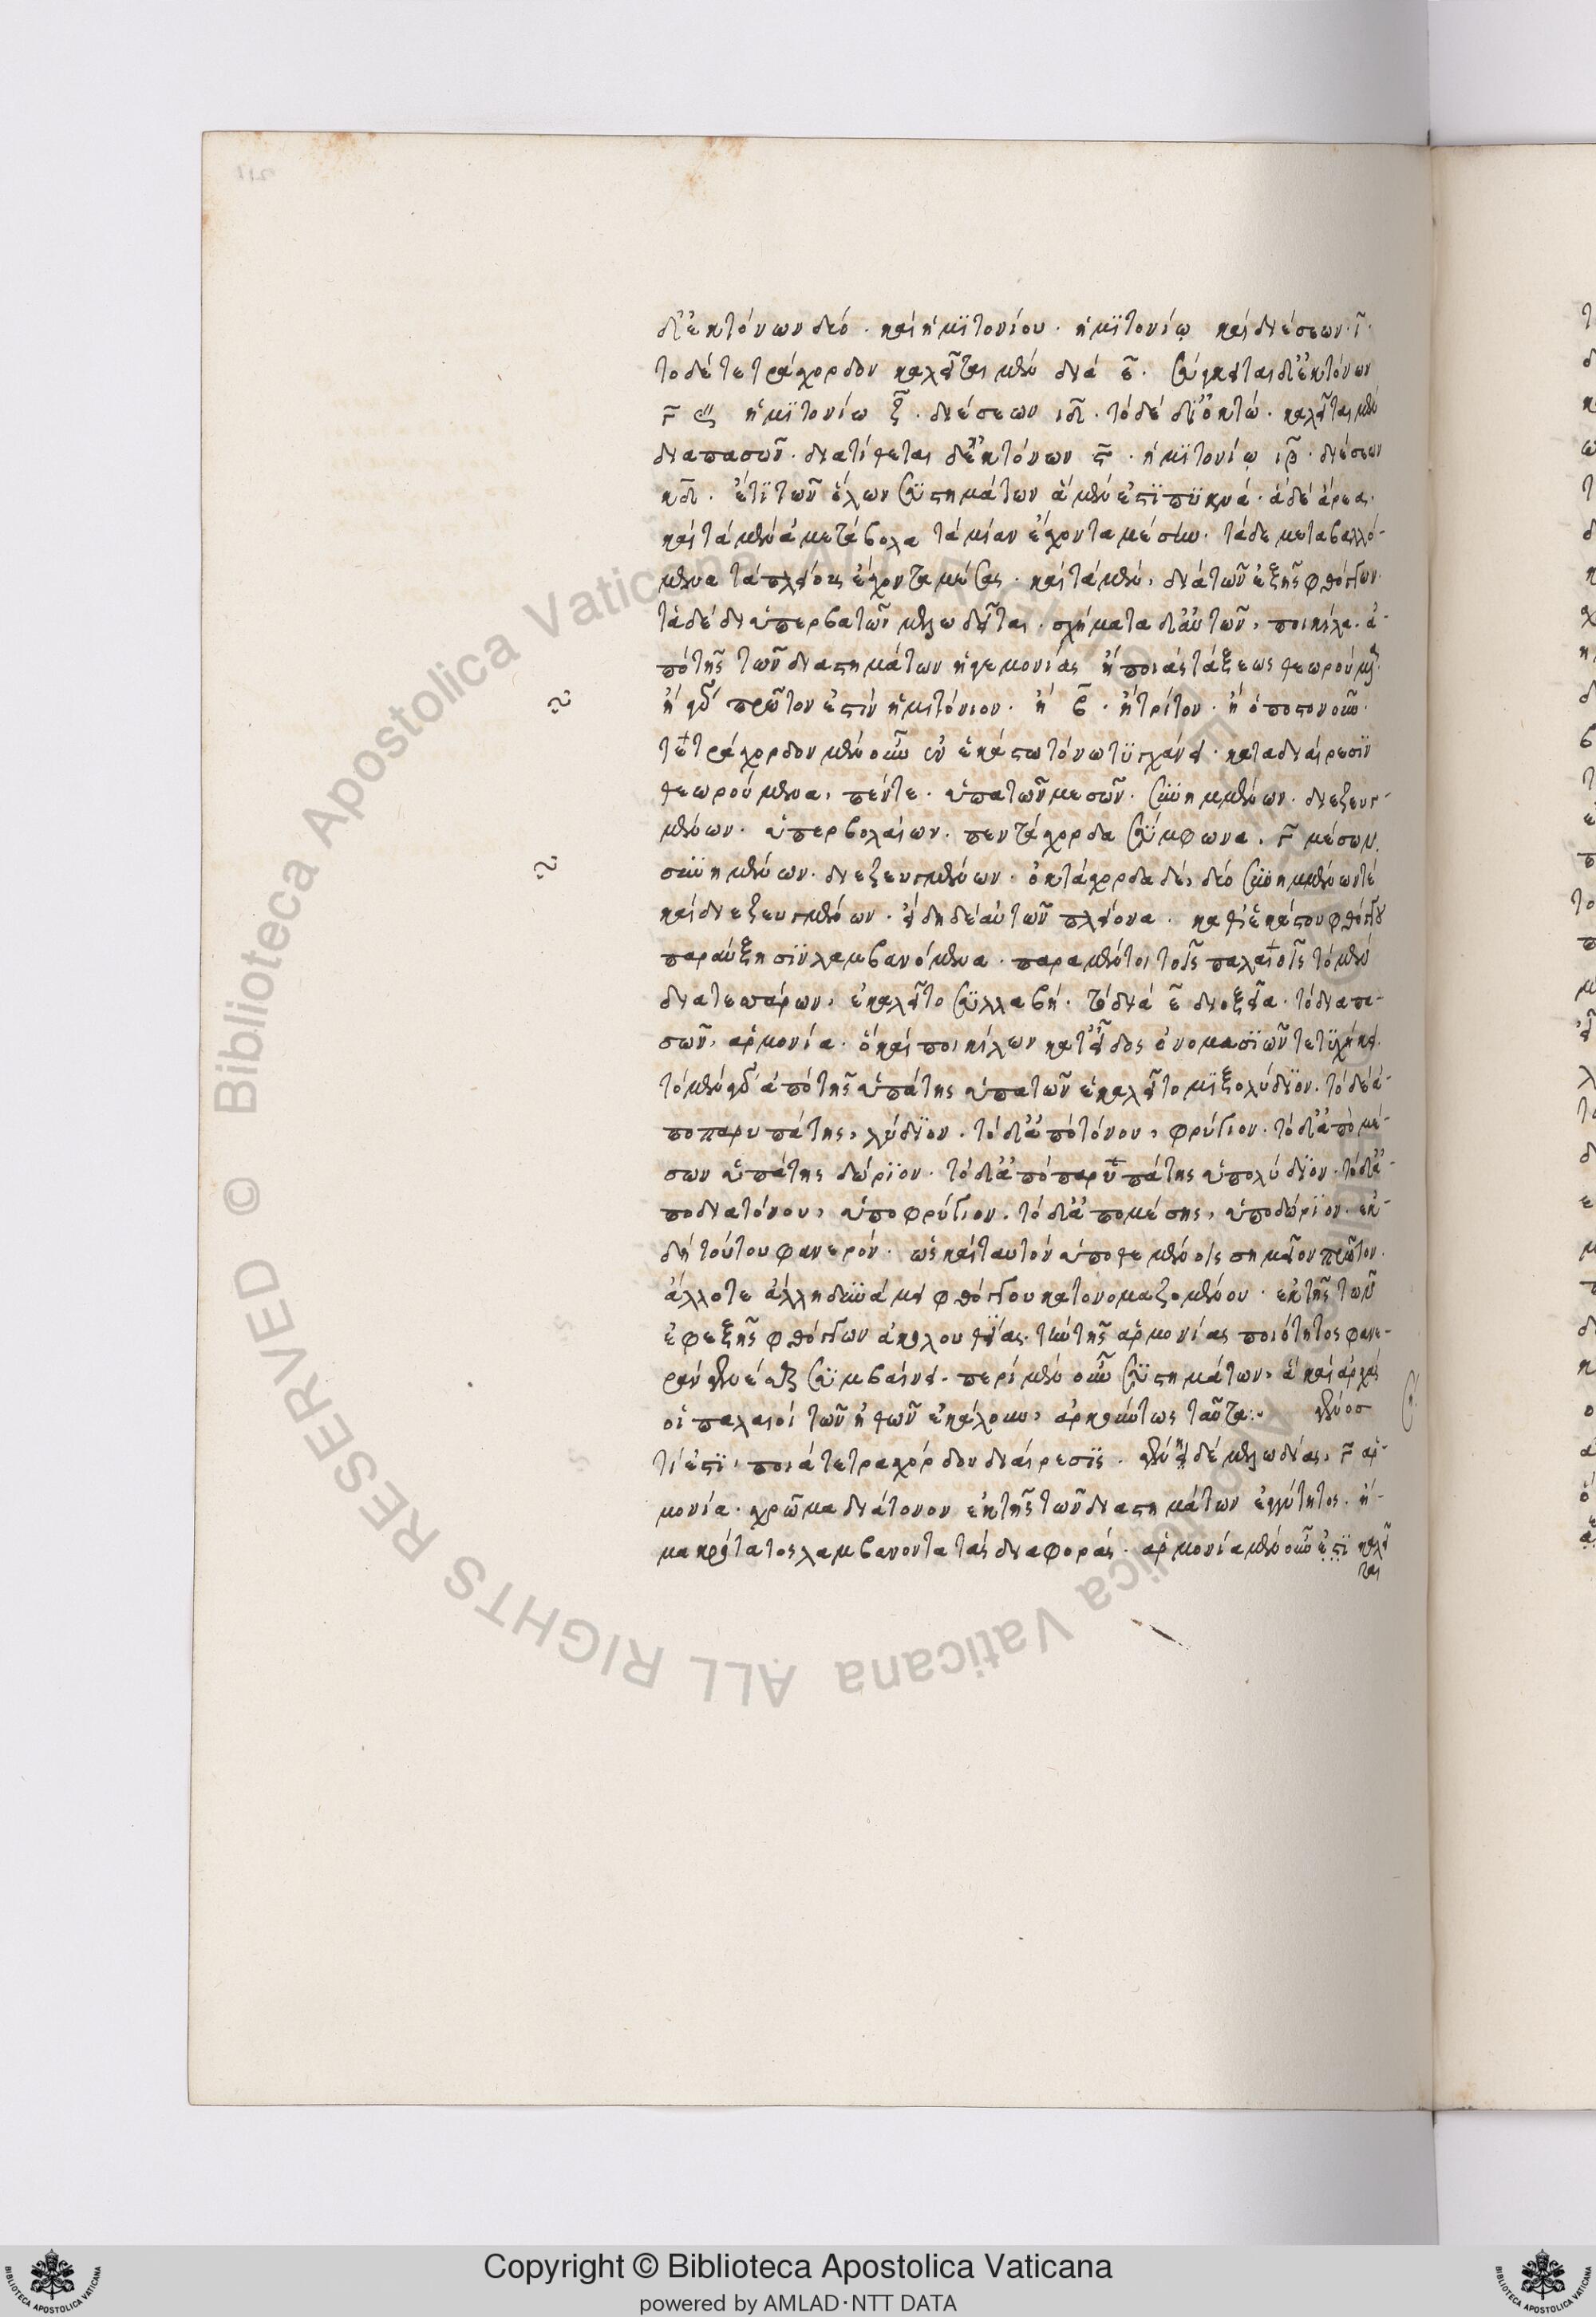 δι' ἐκ τόνων δύο · καὶ ἡμιτονίου · ἡμιτονίω καὶ διέσεων · ῑ ·
τὸ δὲ τετράχορδον καλεῖται μὲν διὰ ε̄ · σύγκειται δι' ἐκ τόνων
γ̄ ἡμιτονίω ζ̄ · διέσεων ιδ̄ · τὸ δὲ δι' ὀκτώ · καλεῖται μὲν
διαπασῶν · διατίθεται δ' ἐκ τόνων ϛ̄ · ἡμιτονίω ιβ̄ · διέσεων
κδ̄ · ἔτι τῶν ὅλων συστημάτων ἃ μέν ἐστι πυκνά · ἃ δὲ ἀρεα ·
καὶ τὰ μὲν ἀμετάβολα τὰ μίαν ἔχοντα μέσην · τὰ δὲ μεταβαλλό-
μενα τὰ πλείους ἔχοντα μέσας · καὶ τὰ μὲν, διὰ τῶν ἑξῆς φθόγγων
τὰ δὲ δι' ὑπερβατῶν μελωδεῖται · σχήματα δ' αὐτῶν, ποικίλα · ἀ-
πὸ τῆς τῶν διαστημάτων ἡγεμονίας ἢ ποιᾶς τάξεως θεωρούμεν
ἢ γὰρ πρῶτον ἐστὶν ἡμιτόνιον · ἢ β̄ · ἢ τρίτον · ἢ ὁποστονοῦν ·
τετράχορδον μὲν οὖν ἐν ἑκάστω τόνω τυγχάνει · κατὰ διαίρεσιν
θεωρούμενα, πέντε · ὑπατῶν μεσῶν · συνημμένων · διεζευγ-
μένων · ὑπερβολαίων · πεντάχορδα σύμφωνα, γ̄ μέσων
συνημένων · διεζευγμένων · ὀκτάχορδα δὲ, δύο συνημμένων τὲ
καὶ διεζευγμένων · εἴδη δὲ αὐτῶν πλείονα · καθ' ἑκάστου φθόγγου
παραύξησιν λαμβανόμενα · παρὰ μέντοι τοῖς παλαιοῖς τὸ μὲν
διατεσσάρων, ἐκαλεῖτο συλλαβή · τὸ διὰ ε̄ διοξεῖα · τὸ διαπα-
σῶν, ἁρμονία · ὃ καὶ ποικίλων κατ' εἶδος ὀνομασιῶν τετύχηκε ·
τὸ μὲν γὰρ ἀπὸ τῆς ὑπάτης ὑπατῶν ἐκαλεῖτο μιξολύδιον · τὸ δὲ ἀ-
πὸ παρυπάτης, λύδιον · τὸ δ' ἀπὸ τόνου, φρύγιον · τὸ δ' ἀπὸ μέ-
σων ὑπάτης δώριον · τὸ δ' ἀπὸ παρυπάτης ὑπολύδιον · τὸ δ' ἀ-
πὸ διατόνου, ὑποφρύγιον · τὸ δ' ἀπὸ μέσης, ὑποδώριον · ἐκ
δὴ τούτου φανερόν · ὡς καὶ ταυτὸν ὑποθεμένοις σημεῖον πρῶτον ·
ἄλλοτε ἄλλη δυνάμει φθόγγου κατονομαζομένου · ἐκ τῆς τῶν
ἐφεξῆς φθόγγων ἀκολουθίας · τὴν τῆς ἁρμονίας ποιότητος φανε-
ρὰν γενέσθαι συμβαίνει · περὶ μὲν οὖν συστημάτων, ἃ καὶ ἀρχὰς
οἱ παλαιοὶ τῶν ἠθῶν ἐκάλουν, ἀρκούντως ταῦτα :· γένος
τί ἐστι, ποιὰ τετραχόρδου διαίρεσις · γένη δὲ μελωδίας, γ̄ ἁρ-
μονία · χρῶμα διάτονον ἐκ τῆς τῶν διαστημάτων ἐγγύτητος · ἢ
μακρότατος λαμβανοντα τὰς διαφοράς · ἁρμονία μὲν οὖν ἐστὶ καλεῖ
ται
Copyright © Biblioteca Apostolica Vaticana
powered by AMLAD·NTT DATA